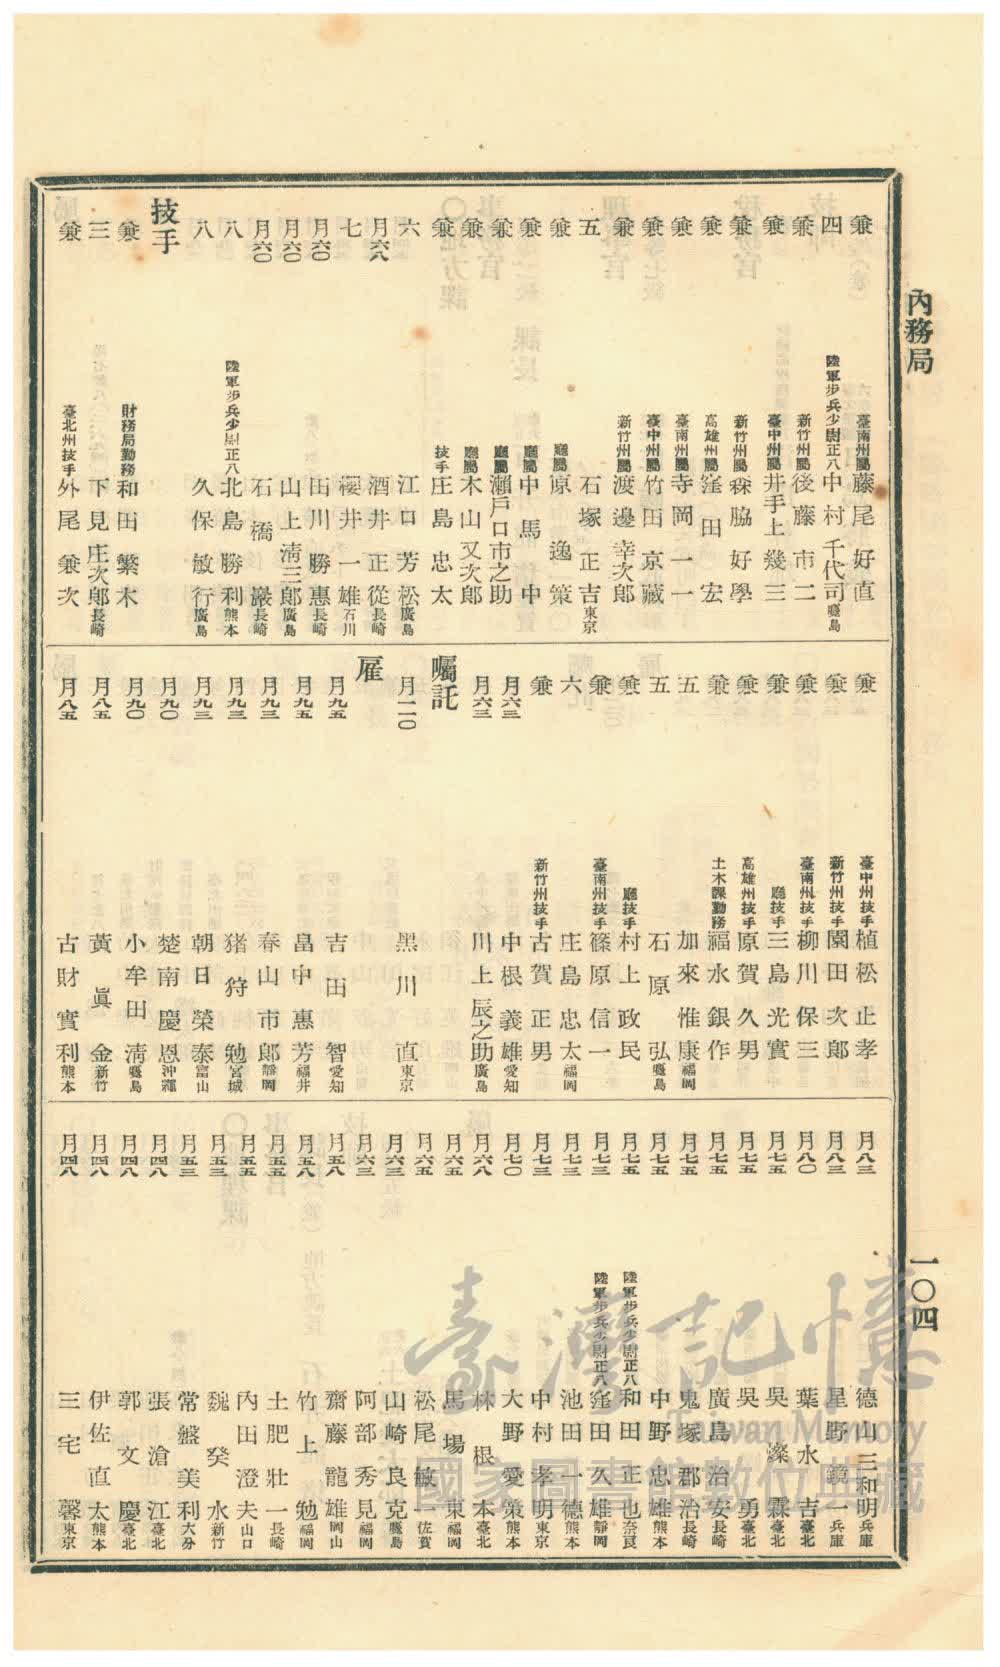 內務局
一〇四
兼 臺南州屬 藤尾好直
四 陸軍步兵少尉正八 中村千代司 鹿島
兼 新竹州屬 後藤市二
兼 臺中州屬 井手上幾三
兼 新竹州屬 森脇好學
兼 高雄州屬 窪田宏
兼 臺南州屬 寺岡一一
兼 臺中州屬 竹田京藏
兼 新竹州屬 渡邊幸次郎
五 石塚正吉 東京
兼 廳屬 原逸策
兼 廳屬 中馬中
兼 廳屬 瀨戶口市之助
兼 廳屬 木山又次郎
兼 技手 庄島忠太
六 江口芳松 廣島
月六八 酒井正從 長崎
七 櫻井一雄 石川
月六〇 田川勝惠 長崎
月六〇 山上淸三郎 廣島
月六〇 石橋巖 長崎
八 陸軍步兵少尉正八 北島勝利 熊本
八 久保敏行 廣島
技手
兼 財務局勤務 和田繁木
三 下見庄次郞 長崎
兼 臺北州技手 外尾兼次
兼 臺中州技手 植松止孝
兼 新竹州技手 園田次郎
兼 臺南州技手 柳川保三
兼 廳技手 三島光實
兼 高雄州技手 原賀久男
兼 土木課勤務 福永銀作
五 加來惟康 福岡
五 石原弘 鹿島
兼 廳技手 村上政民
兼 臺南州技手 篠原信一
六 庄島忠太 福岡
兼 新竹州技手 古賀正男
月六三 中根義雄 愛知
月六三 川上辰之助 廣島
囑託
月一一〇 黑川直 東京
雇
月九五 吉田智 愛知
月九五 畠中惠芳 福井
月九三 春山市郎 靜岡
月九三 猪狩勉 宮城
月九三 朝日榮泰 富山
月九〇 楚南慶恩 沖繩
月九〇 小牟田淸 鹿島
月八五 黃眞金 新竹
月八五 古財實利 熊本
月八三 德山三和明 兵庫
月八三 星野鏡一 兵庫
月八〇 葉水吉 臺北
月七五 吳燦霖 臺北
月七五 吳勇 臺北
月七五 廣島治安 長崎
月七五 鬼塚郡治 長崎
月七五 中野忠雄 熊本
月七五 陸軍步兵少尉正八 和田正也 奈良
月七三 陸軍步兵少尉正八 窪田久雄 靜岡
月七三 池田一德 熊本
月七三 中村孝明 東京
月七〇 大野愛策 熊本
月六八 林根本 臺北
月六五 馬場東 福岡
月六五 松尾敏一 佐賀
月六三 山崎良克 鹿島
月六三 阿部秀見 福岡
月五八 齋藤龍雄 岡山
月五八 竹上勉 福岡
月五五 土肥壯一 長崎
月五五 內田澄夫 山口
月五三 魏癸水 新竹
月五三 常盤美利 大分
月四八 張滄江 臺北
月四八 郭文慶 臺北
月四八 伊佐直太 熊本
月四八 三宅馨 東京
臺灣記憶
Taiwan Memory
國家圖書館數位典藏